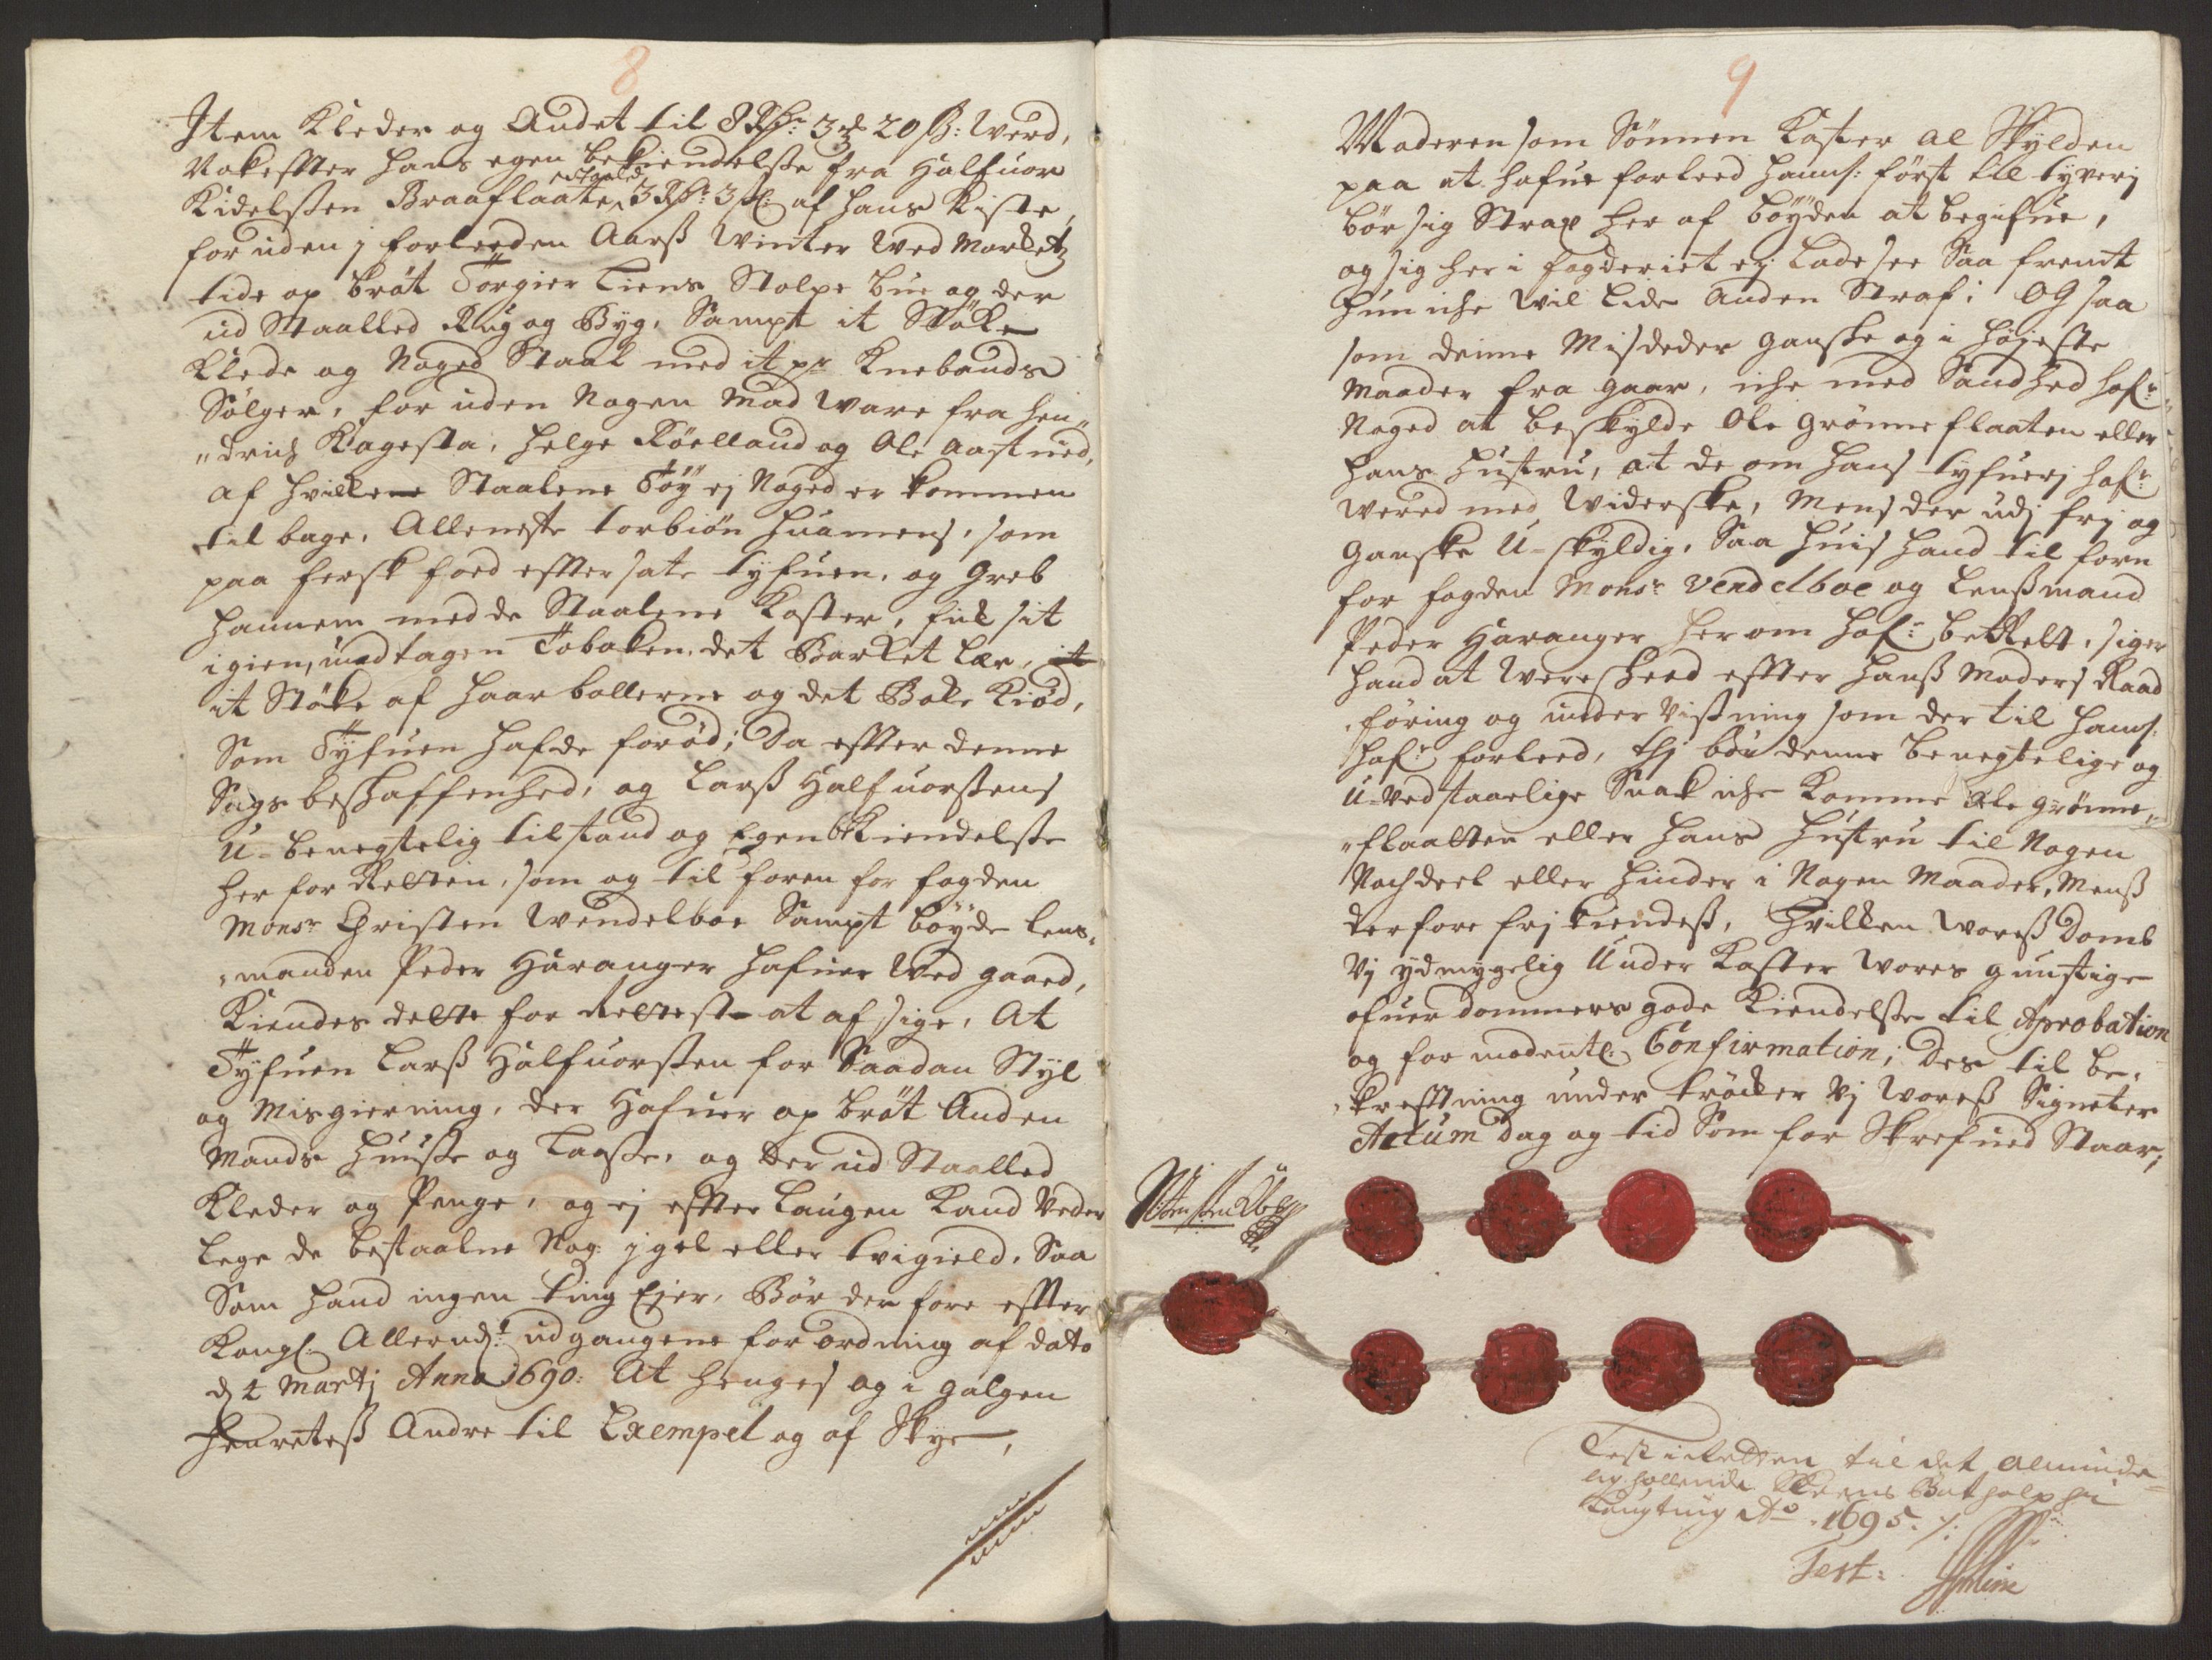 8
Item Kleder og Andet til 8 Rdr: 3 20 ß: Werd,
Nokeffter hans egen bekiendelsse fra Halfuor
Kidelssen Braaflaaten 3 Rdr: 3 af hans Kiste,
for uden j forleeden Aarß Winter Wed Markets
tide op bröt Törgier Liens Stolpe bue og der
ud Staalled Rug og Byg, Sampt it Stöke
Klede og Noged Staal med it pr Knebands
Sölger, for uden Nogen Mad Ware fra hen„
„drich Kagesta, Helge Röelland og Ole Aastued,
af hvilkene Staalene Töÿ ej Noged er kommen
til bage, Alleneste torbiön Huamens, som
paa fersk foed effter satte tyfuen, og Greb
hannem med de Staalene Koster, fik sit
igien, undtagen Tobaken, det Barket Lær, it
it Stöke af Haar bollerne og det Bake Kiöd,
Som Tÿfuen hafde foröd; Da effter denne
Sags beskaffenhed, og Larß Halfuorssens
U-benegtelig tilstand og Egen bekiendelsse
her for Retten, som og til foren for fogden
Monsr Christen Wendelboe Sampt böÿde Lens„
„manden Peder Haranger hafuer Wed gaaed,
Kiendes dette for Rettest at af sige, At
Tÿfuen Larß Halfuorssen for Saadan Styl
og Misgierning, der Hafuer op bröt Anden
Mands Huusse og Laasse, og der ud Staalled
Kleder og Penge, og ej effter Laugen Kand Veder
Lege de bestaalne Nog jgel eller tvigield, Saa
Som hand ingen ting Ejer, Bör der fore effter
Kongl: Allernd:st udgangene forordning af dato
d 4 Martj Anno 1690: At henges og i galgen
henrettes Andre til Exempel og af Skye,
9
Moderen som Sönnen Kaster al Skylden
paa at hafue forleed hanns: först til tyverj
bör sig Strax her af böÿden at begifue,
og sig her i fogderiet ej Lade see Saa fremt
hun iche wil lide anden Straf; OG saa
som denne Misdeder ganske og i höjeste
Maader fra gaar, iche med Sandhed hafr
Noged at beskylde Ole Grönneflaaten eller
hans Hustru, at de om hans tyfuerj hafr
Wered med Widerske, Mens der udj frj og
Ganske U-skyldig, Saa huis hand til forn
for fogden Monsr Vendelboe og Lensmand
Peder Haranger her om hafr bekLett, siger
hand at were Skeed effter hanß Moders Raad
föring og under Visning som der til hans
hafr forleed, thj bör denne benegtelige og
U-vedstaaelige Snak iche Komme Ole Grönne„
„flaatten eller hans Hustru til Nogen
Nachdeel eller hinder i Nogen Maader, Menß
derfore frj kiendeß, Hvilken Woreß Domb
Vj ydmygelig Under Kaster Wores gunstige
ofuer dommers gode Kiendelsse til Aprobation
og formodentl: Confirmation; Des til be„
„krefftning under tröcker Vj Woreß Signeter
Actum Dag og tid Som for Skrefued Staar;
Test i Retten til det alminde
lig hollende Skeens Batholphi
Laugting Ao 1695 ./:
Test: